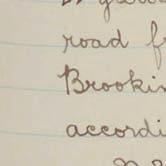 road f
Brookin
accordi